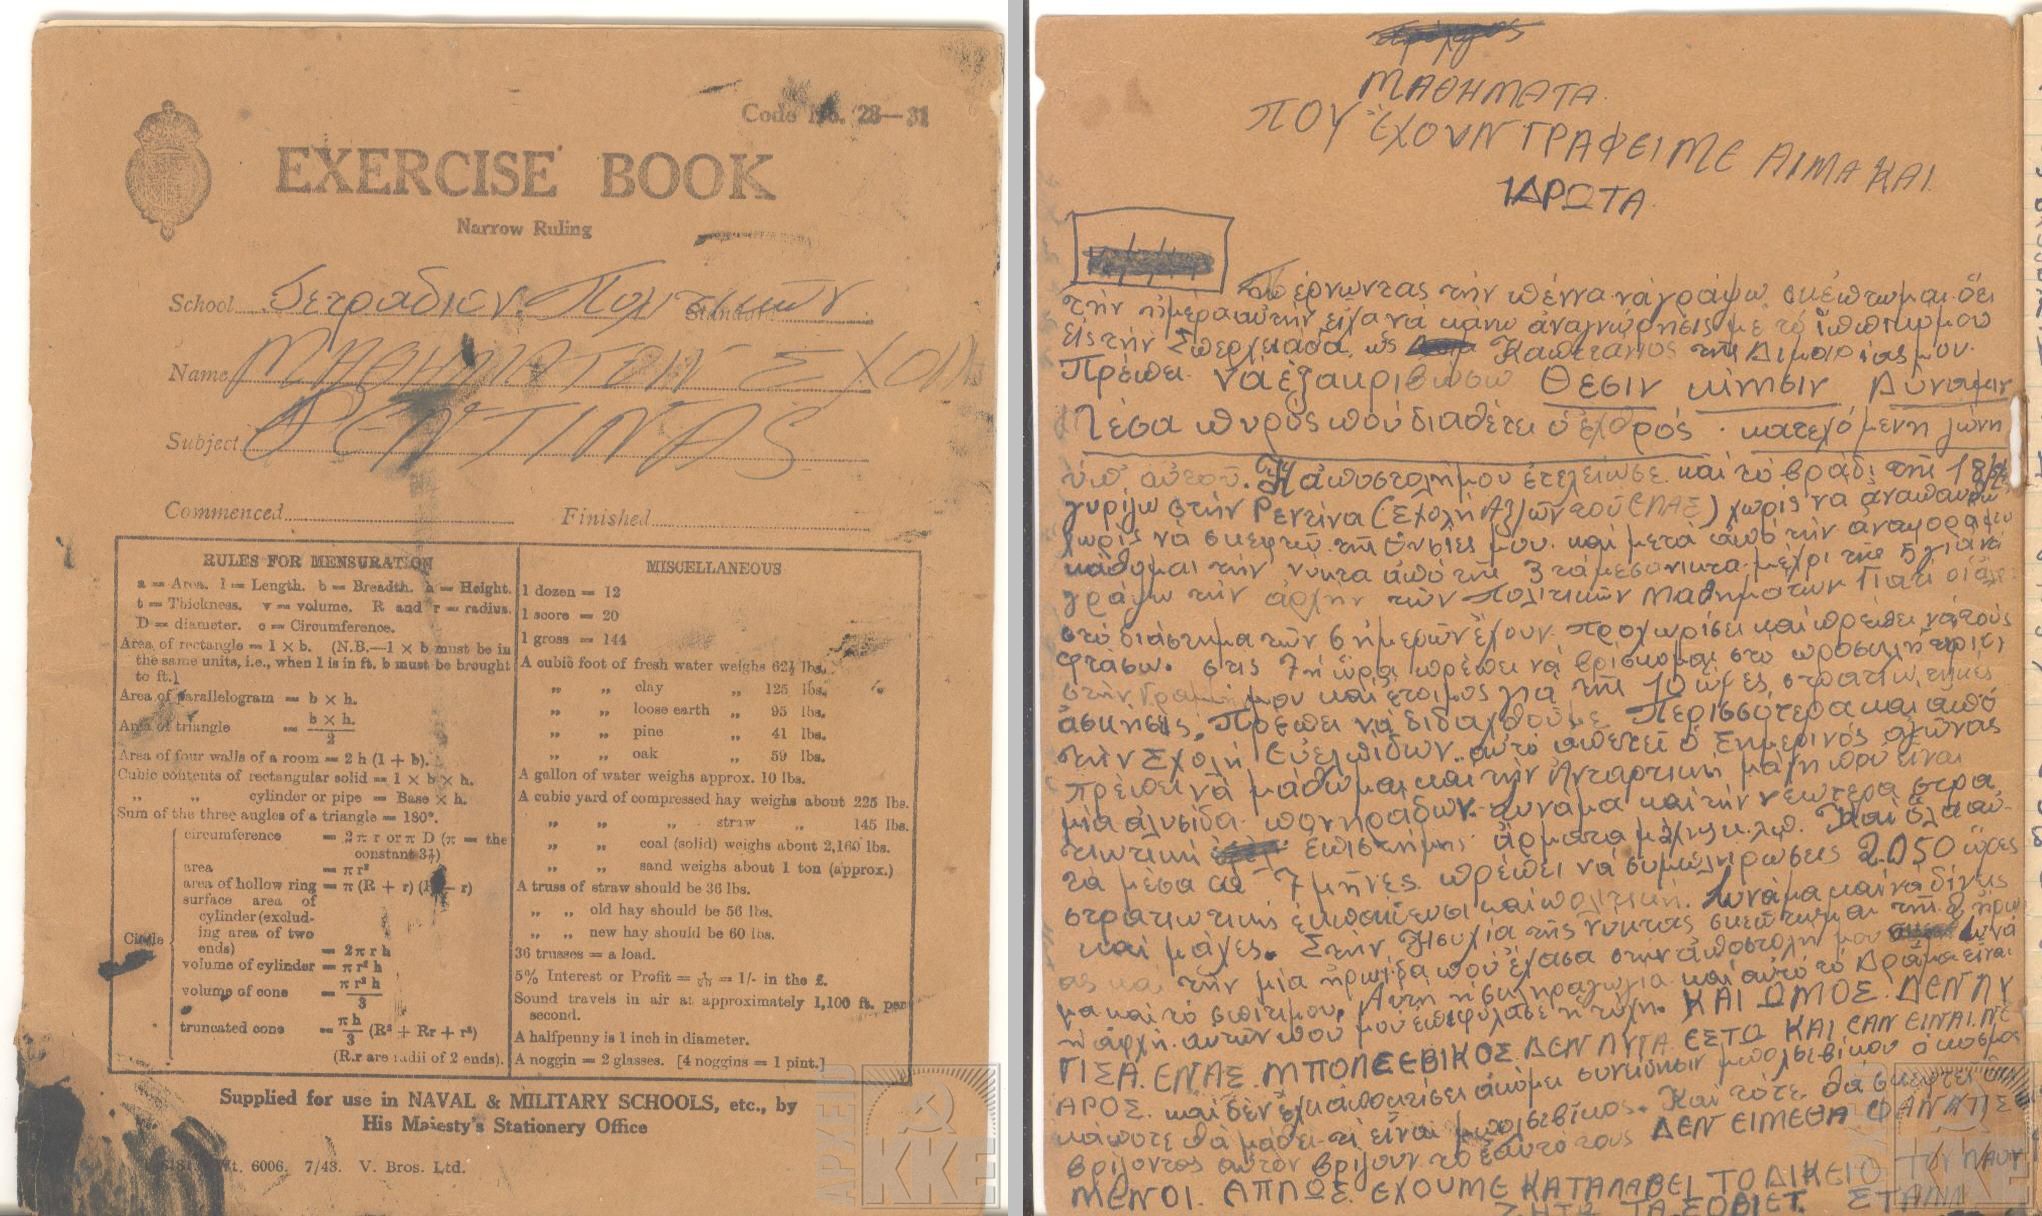 Code No. 28—31
EXERCISE BOOK
Narrow Ruling
School Τετράδιον Πολιτικών
Standard
Name ΜΑΘΗΜΑΤΩΝ ΣΧΟΛΗ
Subject ΡΕΝΤΙΝΑΣ
Commenced Finished
RULES FOR MENSURATION
a = Area. l = Length. b = Breadth. h = Height.
t = Thickness. v = volume. R and r = radius.
D = diameter. c = Circumference.
Area of rectangle = l × b. (N.B.—l × b must be in
the same units, i.e., when l is in ft. b must be brought
to ft.)
Area of parallelogram = b × h.
Area of triangle = b × h. / 2
Area of four walls of a room = 2 h (l + b).
Cubic contents of rectangular solid = l × b × h.
„ „ cylinder or pipe = Base × h.
Sum of the three angles of a triangle = 180°.
Circle
circumference = 2 π r or π D (π = the
constant 3⅐)
area = π r²
area of hollow ring = π (R + r) (R − r)
surface area of
cylinder (exclud-
ing area of two
ends) = 2π r h
volume of cylinder = π r² h
volume of cone = π r² h / 3
truncated cone = π h / 3 (R² + Rr + r²)
(R.r are radii of 2 ends).
MISCELLANEOUS
1 dozen = 12
1 score = 20
1 gross = 144
A cubic foot of fresh water weighs 62½ lbs.
„ „ clay „ 125 lbs.
„ „ loose earth „ 95 lbs.
„ „ pine „ 41 lbs.
„ „ oak „ 59 lbs.
A gallon of water weighs approx. 10 lbs.
A cubic yard of compressed hay weighs about 225 lbs.
„ „ „ straw „ 145 lbs.
„ „ coal (solid) weighs about 2,160 lbs.
„ „ sand weighs about 1 ton (approx.)
A truss of straw should be 36 lbs.
„ „ old hay should be 56 lbs.
„ „ new hay should be 60 lbs.
36 trusses = a load.
5% Interest or Profit = 1/20 = 1/- in the £.
Sound travels in air at approximately 1,100 ft. per
second.
A halfpenny is 1 inch in diameter.
A noggin = 2 glasses. [4 noggins = 1 pint.]
Supplied for use in NAVAL & MILITARY SCHOOLS, etc., by
His Majesty's Stationery Office
Wt. 6006. 7/43. V. Bros. Ltd.
ΑΡΧΕΙΟ
ΚΚΕ
ΜΑΘΗΜΑΤΑ
ΠΟΥ ΈΧΟΥΝ ΓΡΑΦΕΙ ΜΕ ΑΙΜΑ ΚΑΙ
ΙΔΡΩΤΑ
Παίρνωντας την πέννα να γράψω σκέπτωμαι ότι
την ημέρα αυτήν είχα να κάνω αναγνώρησεις με το ιππικό μου
εις την Σπερχειάδα, ως Καπετάνιος της Διμοιρίας μου.
Πρέπει να εξακριβώσω Θεσιν κίνησιν Δύναμιν
Μέσα πυρός πού διαθέτει ο εχθρός. κατεχόμενη ζώνη
υπ' αυτού. Η αποστολή μου ετελείωσε και το βράδι της 18
γυρίζω στήν Ρεντίνα (Σχολή Αξ/ων του ΕΛΑΣ) χωρίς να αναπαυθώ
χωρίς να σκεφτώ της μου και μετά από την αναφορά
κάθομαι την νυκτα από της 3 τα μεσάνυκτα μέχρι της 5 γιά να
γράψω την αρχήν των Πολιτικών Μαθημάτων Γιατί οι άλ
στο διάστημα των 6 ημερών έχουν προχωρίσει και πρέπει να τους
φτάσω. στις 7 η ώρα πρέπει να βρίσκομαι στο προσκλητήριο
στην γραμμή μου και έτοιμος για της 10 ώρες στρατιωτικές
ασκήσεις. Πρέπει να διδαχθούμε Περισσότερα και από
στην Σχολή Ευελπίδων. αυτό απετεί ο Σημερινός αγώνας
πρέπει να μάθωμαι και την Ανταρτική μάχη που είναι
μία αλυσίδα πονηράδων συνάμα και την νεωτερα στρα
τιωτική επιστήμης άρματα μάχης κ.λ.π. Και όλα αυ
τα μέσα σε 7 μήνες πρέπει να συμπληρώσεις 2050 ώρες
στρατιωτική εκπαίδευσι και πολιτική. Συνάμα και να δίνεις
και μάχες. Στην Ησυχία της νυκτας σκεπτωμαι της
και την μία που έχασα στην αποστολή μου
μα και το σπίτι μου. Αυτή η σκληραγωγία και αυτό το Δράμα είναι
η αρχή αυτών που μου επεφύλασε η τύχη. ΚΑΙ ΟΜΟΣ ΔΕΝ ΛΥ
ΓΙΣΑ. ΕΝΑΣ ΜΠΟΛΣΕΒΙΚΟΣ ΔΕΝ ΛΥΓΑ ΕΣΤΩ ΚΑΙ ΕΑΝ ΕΙΝΑΙ ΝΕ
ΑΡΟΣ και δεν έχει αποκτίσει ακόμει συνείδησιν μπολσεβίκου ο κοσμος
κάποτε θα μάθει τι είναι μπολσεβίκος. Και τότε θα σκεφτεί
βρίζοντας αυτόν βρίζουν το εαυτό τους ΔΕΝ ΕΙΜΕΘΑ ΦΑΝΑΤΙΣ
ΜΕΝΟΙ. ΑΠΛΩΣ ΕΧΟΥΜΕ ΚΑΤΑΛΑΒΕΙ ΤΟ ΔΙΚΕΙΟ ΤΟΥ ΛΑΟΥ
ΖΗΤΩ ΤΑ ΣΟΒΙΕΤ. ΣΤΑΛΙΝ